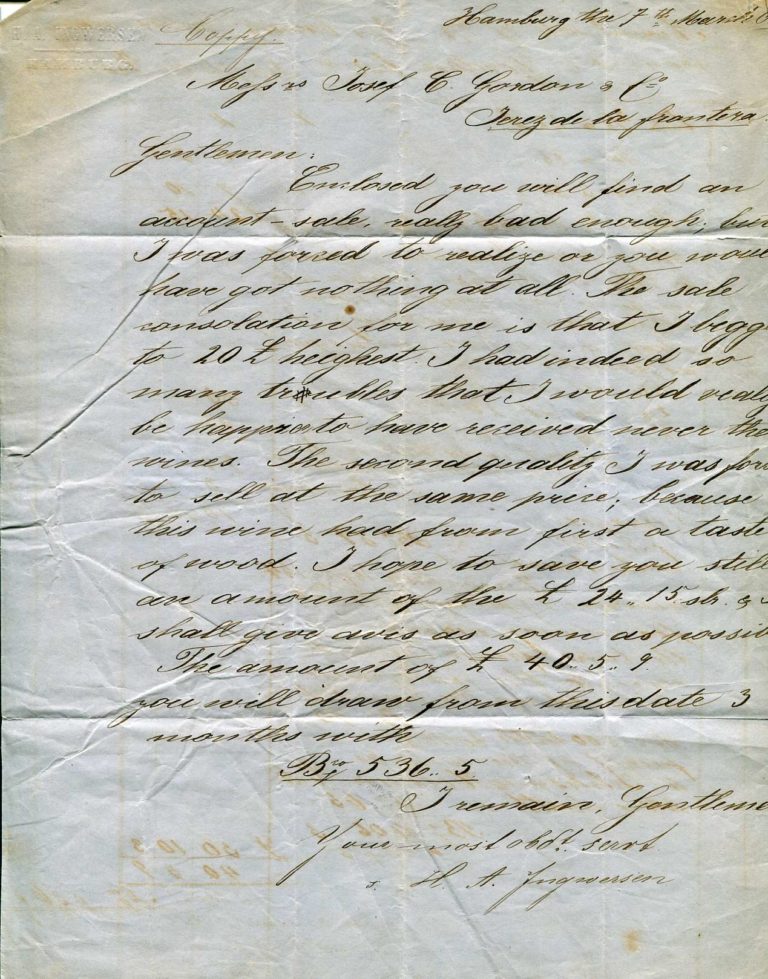 H. A. INGWERSEN
HAMBURG.
Coppy.
Hamburg the 7th March
Messrs Josef C. Gordon & Co
Jerez de la frantera
Gentlemen:
Enclosed you will find an
account-sale, really bad enough, but
I was forced to realize or you would
have got nothing at all. The sale
consolation for me is that I begg
to 20 £ heighest. I had indeed so
many troubles that I would really
be happier to have received never tho
wines. The second quality I was for
to sell at the same price; because
this wine had from first a taste
of wood. I hope to save you still
an amount of the £ 24,, 15. sh. &
shall give avis as soon as possib
The amount of £ 40. 5. 9.
you will draw from this date 3
months with
Bco 536.. 5.
I remain, Gentleme
Your most obdt. servt
s. H. A. Ingwersen